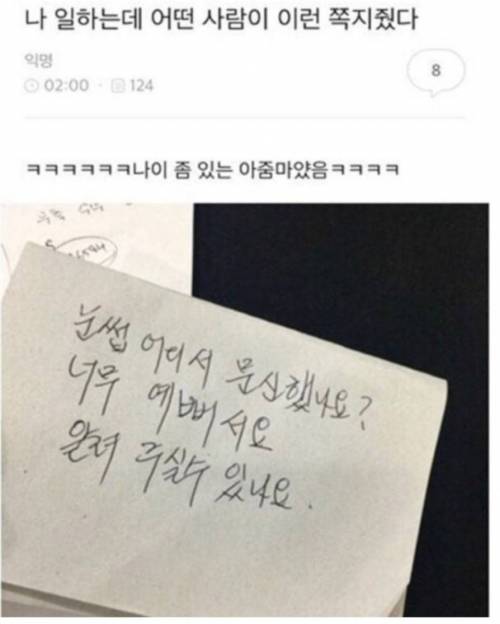 나 일하는데 어떤 사람이 이런 쪽지줬다
익명
8
02:00 · 124
ㅋㅋㅋㅋㅋㅋ나이 좀 있는 아줌마얐음ㅋㅋㅋㅋ
눈썹 어디서 문신했나요?
너무 예뻐서요
알려 주실수 있나요.